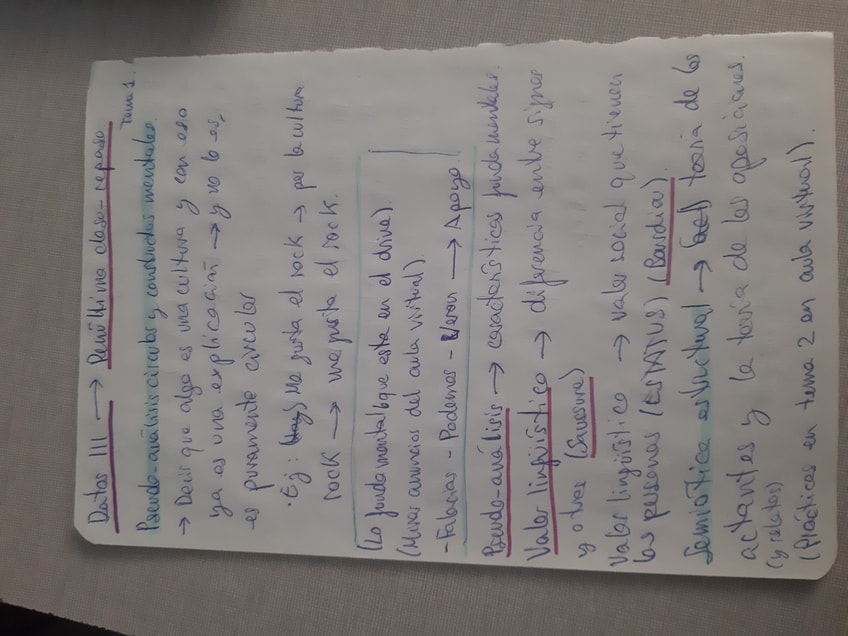 Datos III → Penúltima clase- repaso
Tema 1.
Pseudo-análisis circular y constructos mentales
→ Decir que algo es una cultura y con eso
ya es una explicación → y no lo es,
es puramente circular
· Ej: Me gusta el rock → por la cultura
rock → me gusta el rock.
(Lo fundamental que está en el drive).
(Mirar anuncios del aula virtual).
- Falacias - Podemos - Verón → Apoyo.
Pseudo-análisis → características fundamentales.
Valor lingüístico → diferencia entre signos
y otros (Saussure)
Valor lingüístico → valor social que tienen
las personas (ESTATUS) (Bourdieu).
Semiótica estructural → teoría de los
actantes y la teoría de las oposiciones.
(y relatos)
(Prácticas en tema 2 en aula virtual).